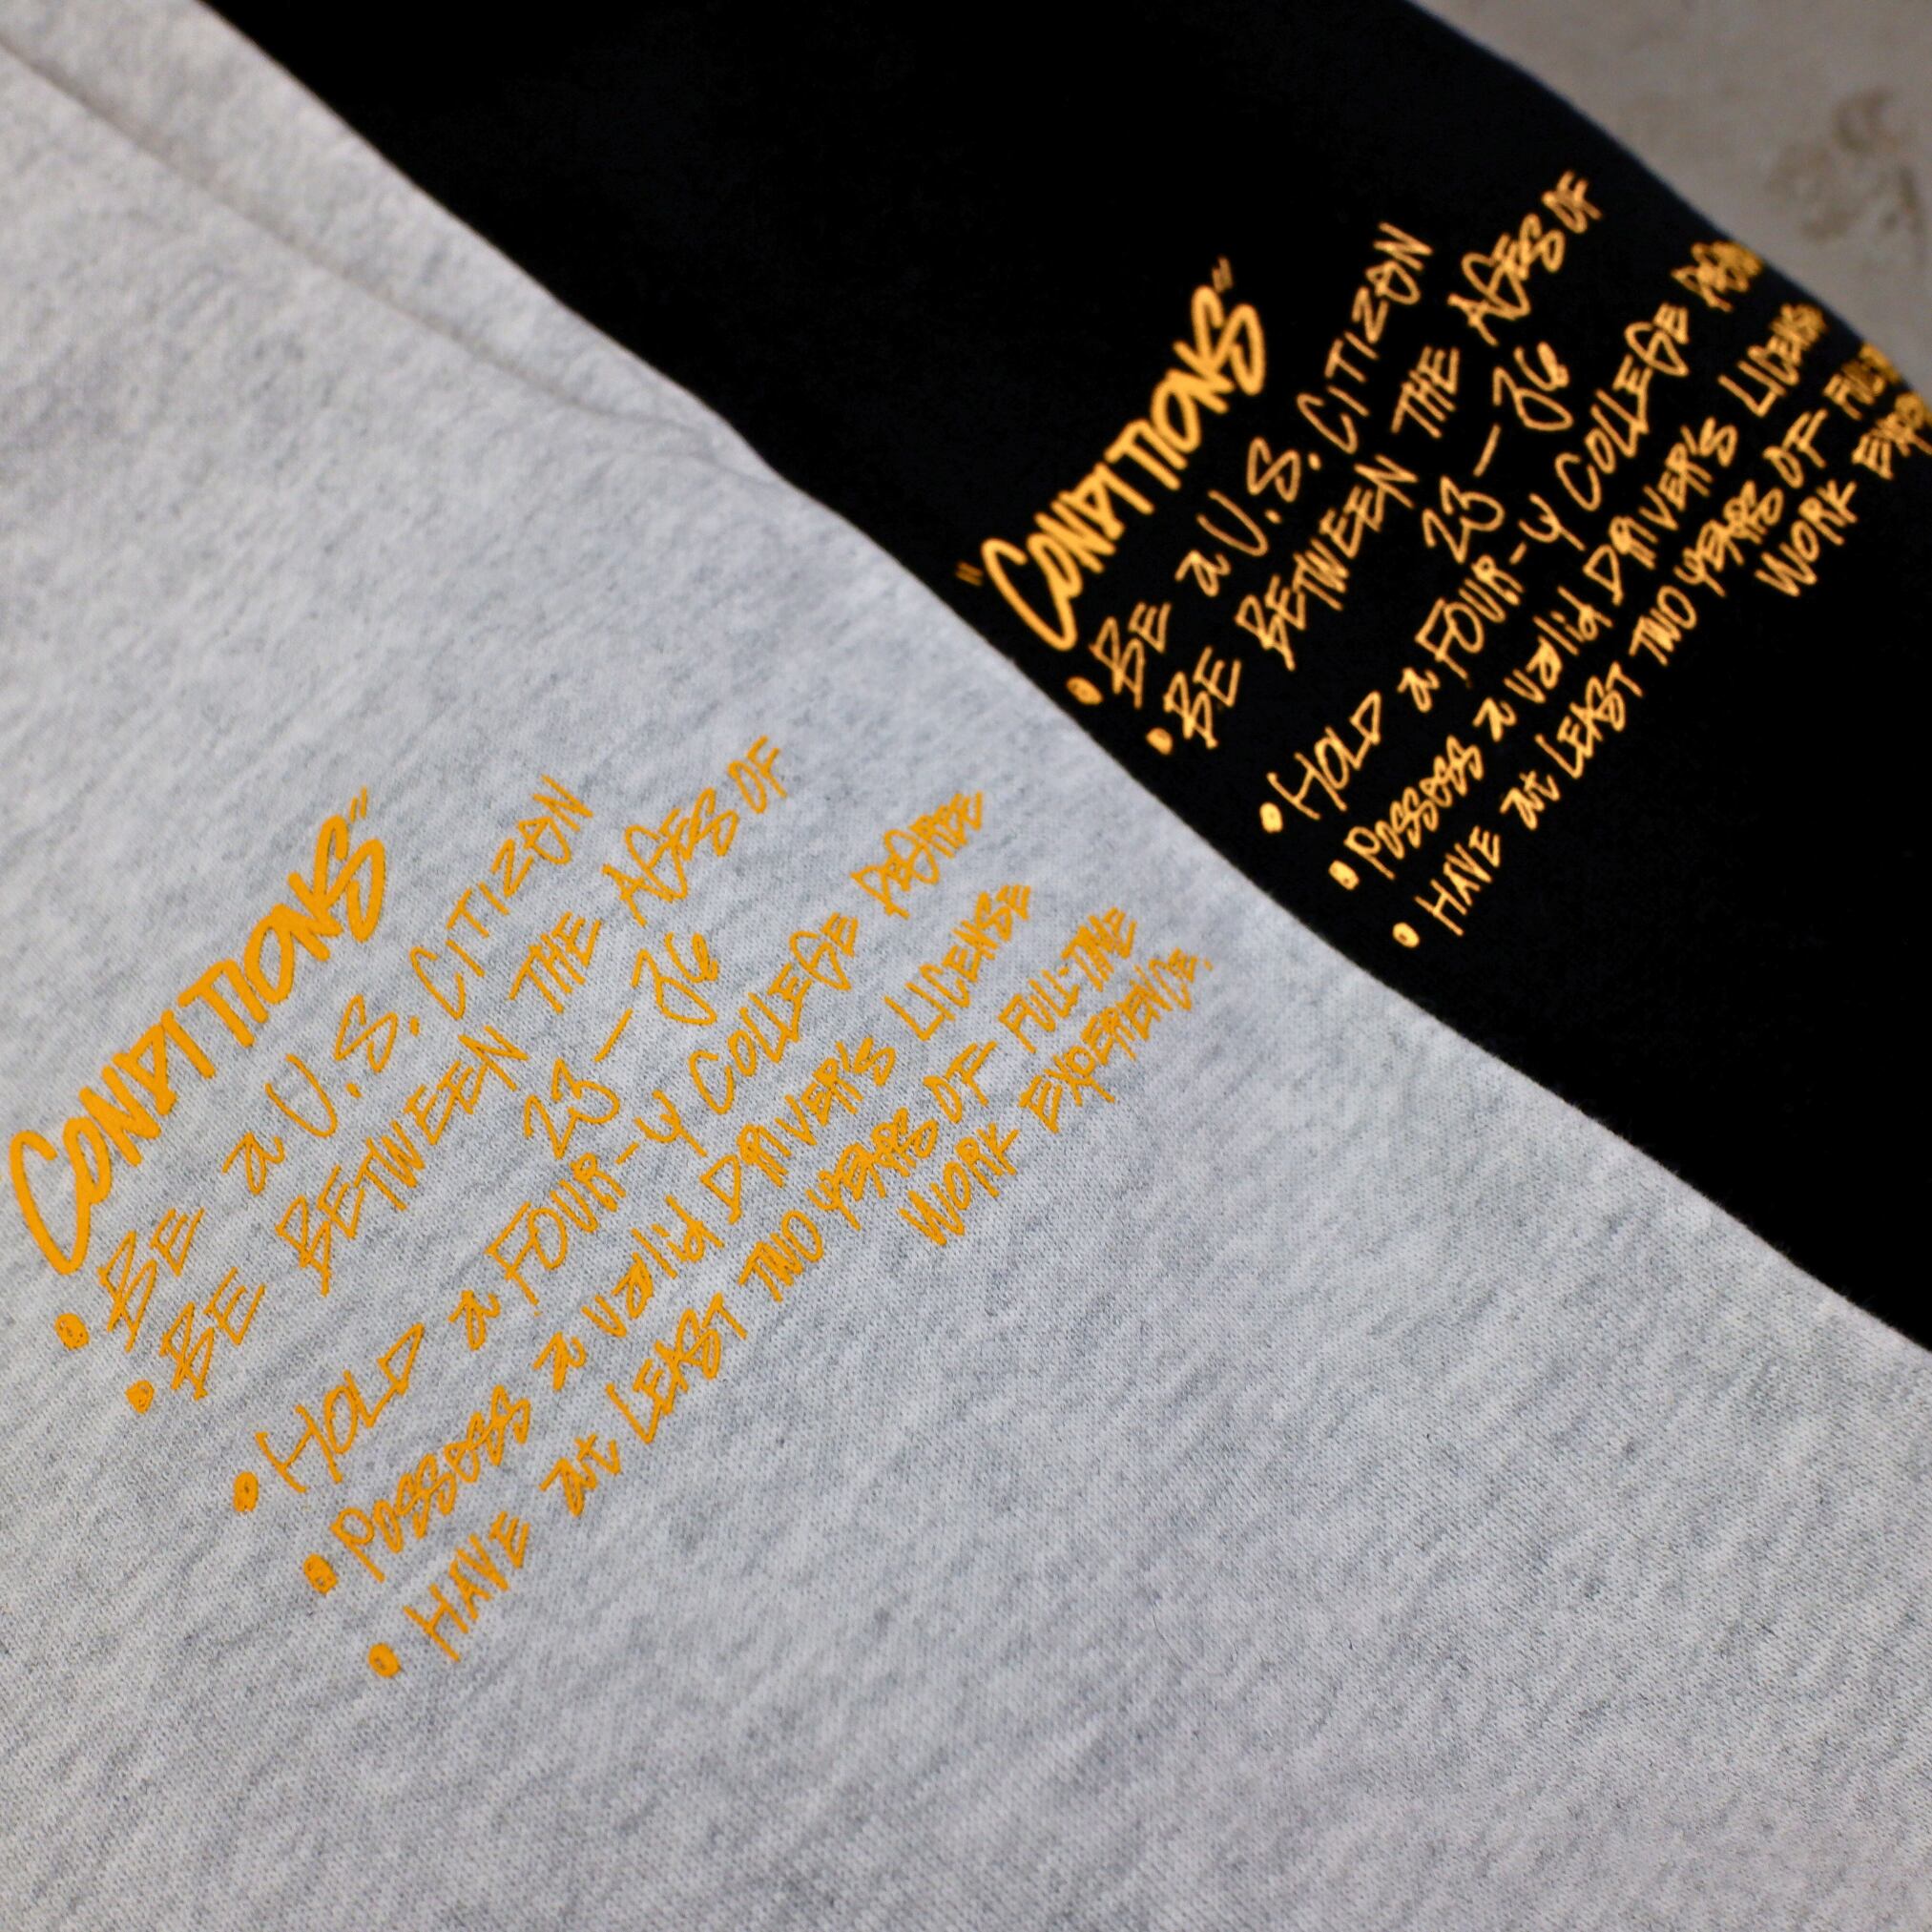 CONDITIONS"
• BE a U.S. CITIZEN
• BE BETWEEN THE AGES OF
23 – 36
• HOLD a FOUR-Y COLLEGE DEGREE
• POSSESS a valid DRIVER'S LICENSE
• HAVE at LEAST TWO YEARS OF FULL-TIME
WORK EXPERIENCE.
"CONDITIONS"
• BE a U.S. CITIZEN
• BE BETWEEN THE AGES OF
23 – 36
• HOLD a FOUR-Y COLLEGE
• POSSESS a valid DRIVER'S LICENSE
• HAVE at LEAST TWO YEARS OF
WORK